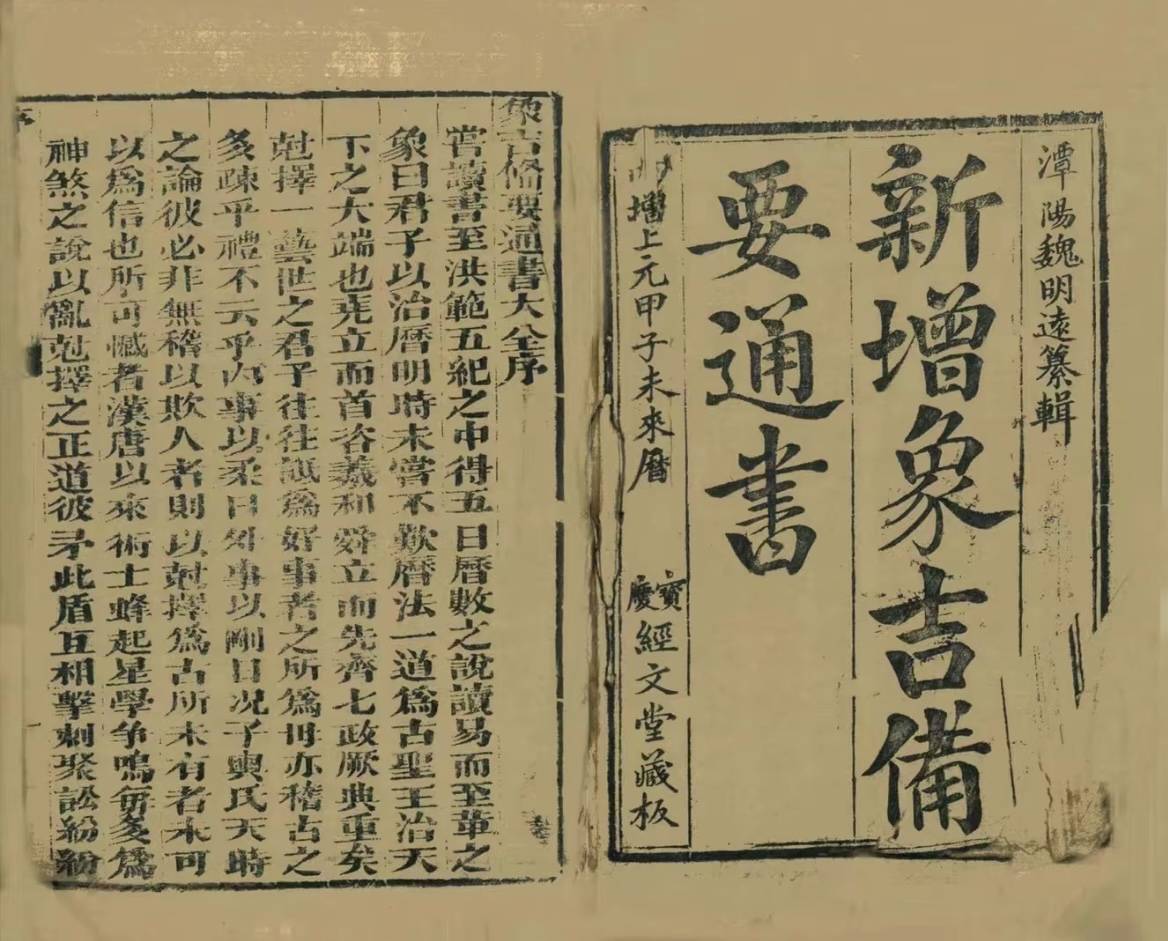 潭陽魏明遠纂輯
新增象吉備
要通書
增上元甲子未來曆
寶慶經文堂藏板
象吉備要通書大全序
嘗讀書至洪範五紀之中得五曰曆數之說讀易而至革之
象曰君子以治曆明時未嘗不歎曆法一道爲古聖王治天
下之大端也堯立而首咨羲和舜立而先齊七政厥典重矣
尅擇一藝世之君子往往詆爲好事者之所爲毋亦稽古之
多疎乎禮不云乎內事以柔日外事以剛日况子輿氏天時
之論彼必非無稽以欺人者則以尅擇爲古所未有者未可
以爲信也所可憾者漢唐以來術士蜂起星學争鳴每多爲
神煞之說以亂尅擇之正道彼矛此盾互相擊刺聚訟紛紛